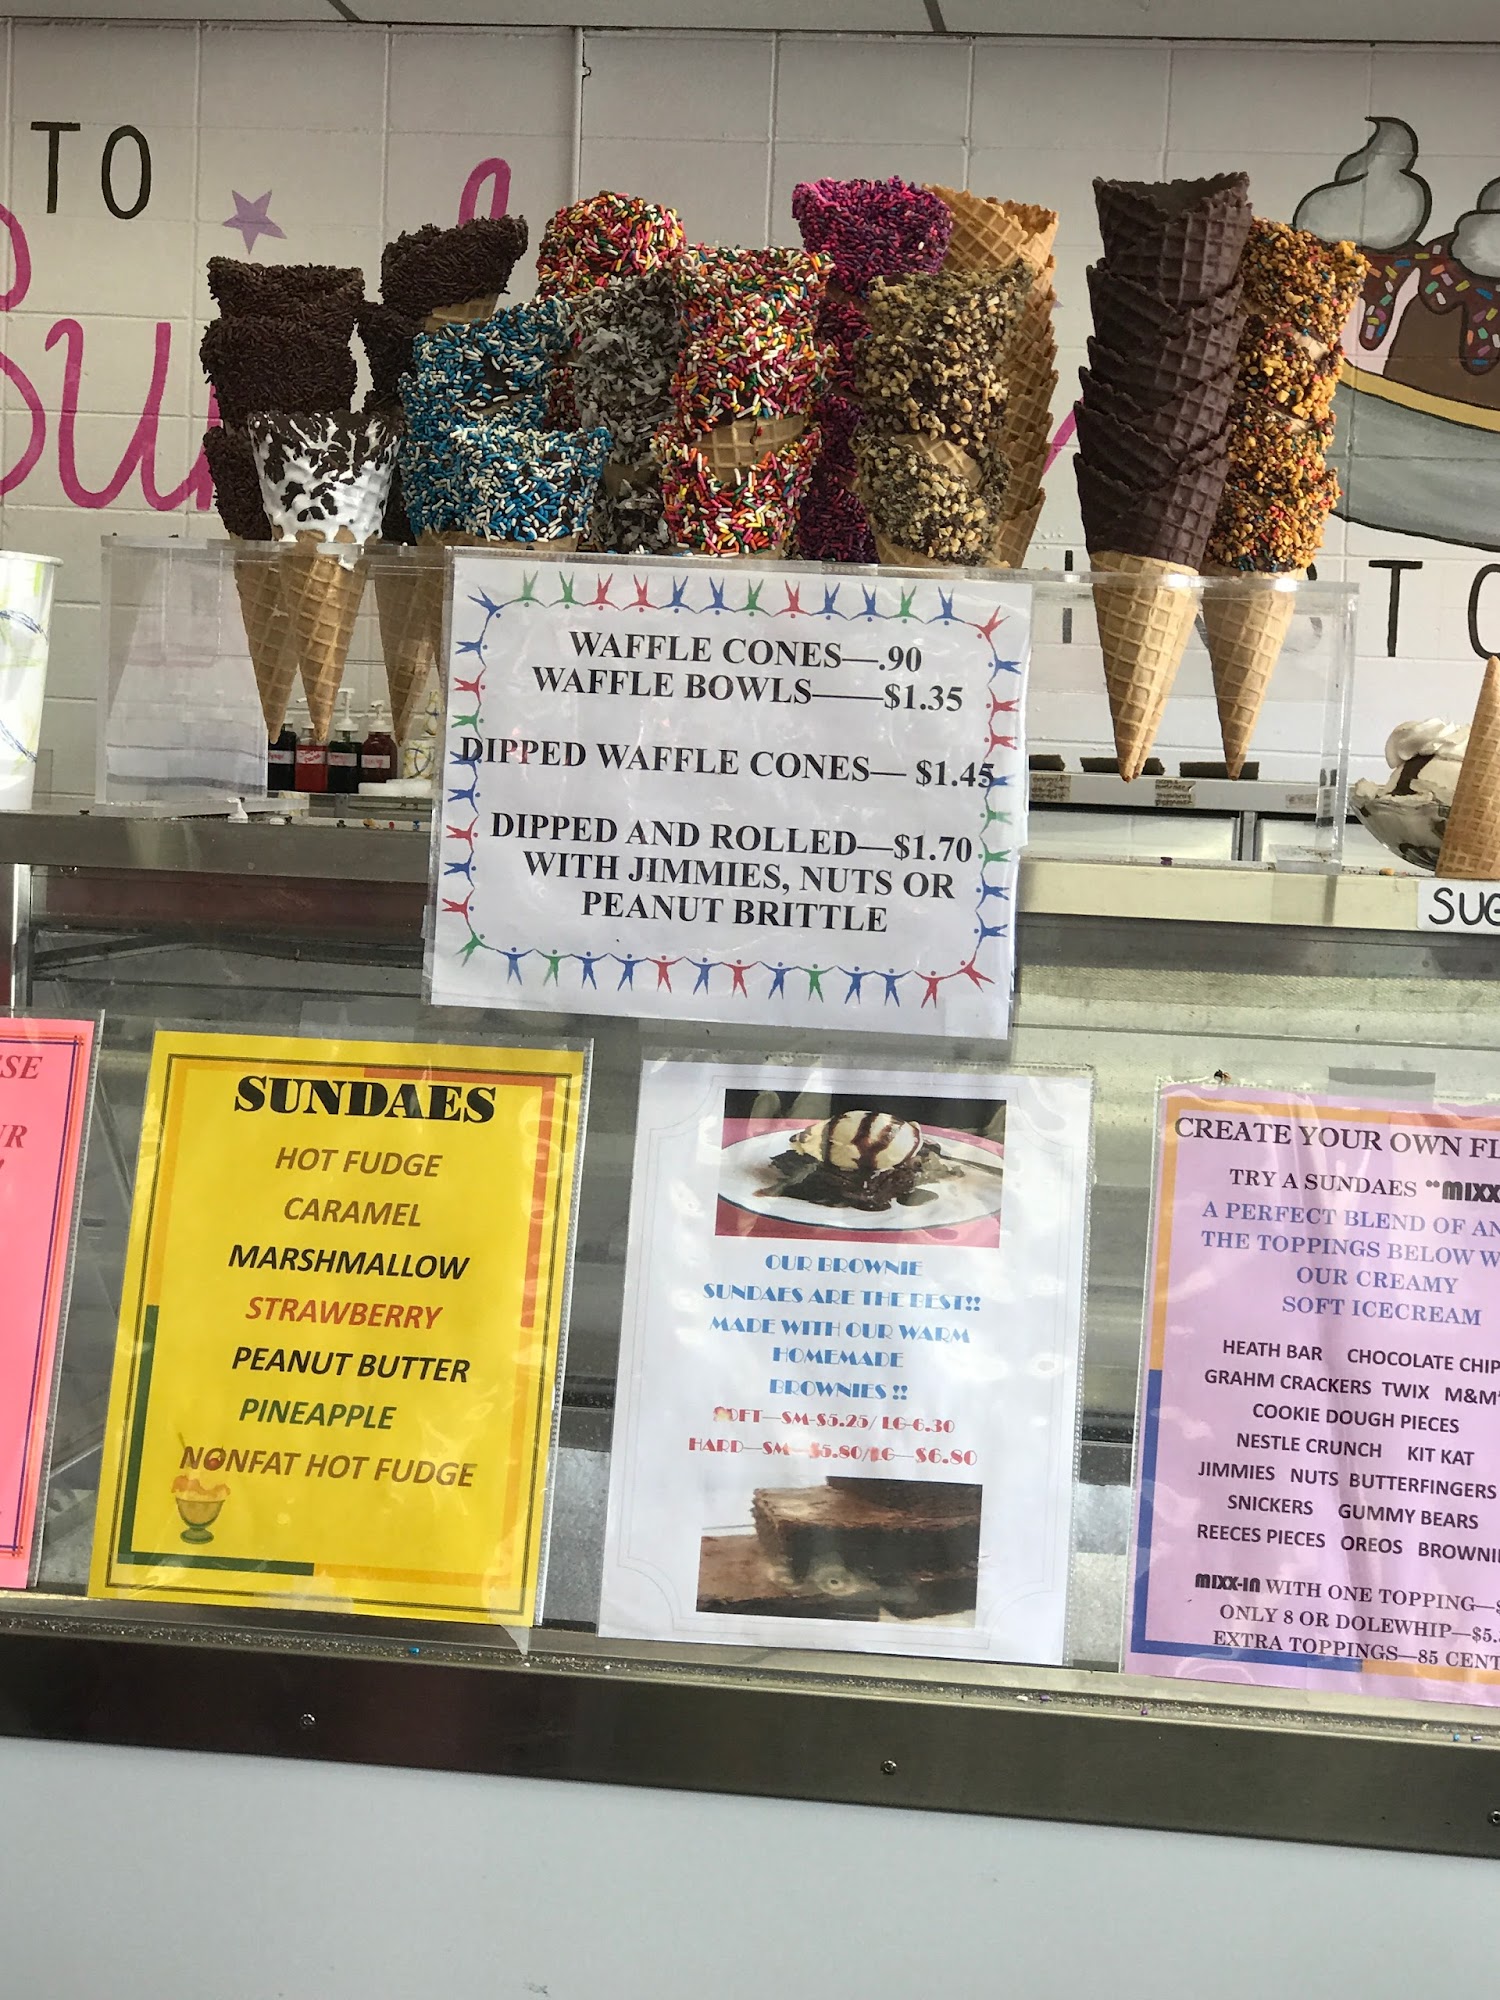 TO
WAFFLE CONES—.90
WAFFLE BOWLS——$1.35
DIPPED WAFFLE CONES— $1.45
DIPPED AND ROLLED—$1.70
WITH JIMMIES, NUTS OR
PEANUT BRITTLE
SUNDAES
HOT FUDGE
CARAMEL
MARSHMALLOW
STRAWBERRY
PEANUT BUTTER
PINEAPPLE
NONFAT HOT FUDGE
OUR BROWNIE
SUNDAES ARE THE BEST!!
MADE WITH OUR WARM
HOMEMADE
BROWNIES !!
SOFT—SM-$5.25/ LG-6.30
HARD—SM—$5.80/LG—$6.80
CREATE YOUR OWN
TRY A SUNDAES "MIXX
A PERFECT BLEND OF
THE TOPPINGS BELOW
OUR CREAMY
SOFT ICECREAM
HEATH BAR CHOCOLATE CHIP
GRAHM CRACKERS TWIX M&M'
COOKIE DOUGH PIECES
NESTLE CRUNCH KIT KAT
JIMMIES NUTS BUTTERFINGERS
SNICKERS GUMMY BEARS
REECES PIECES OREOS BROWNI
MIXX-IN WITH ONE TOPPING—
ONLY 8 OR DOLEWHIP—$5.
EXTRA TOPPINGS—85 CENT